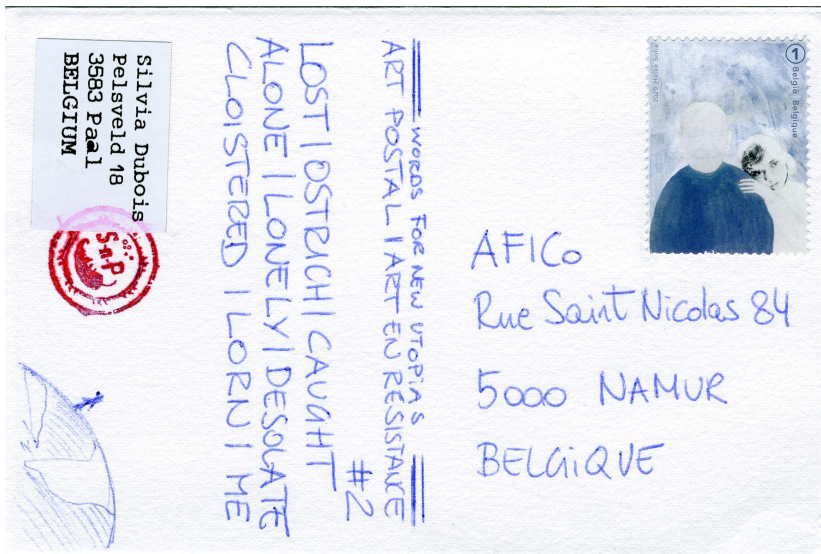 Silvia Dubois
Pelsveld 18
3583 Paal
BELGIUM
SnP
WORDS FOR NEW UTOPIAS
ART POSTAL | ART EN RESISTANCE
#2
LOST | OSTRICH | CAUGHT
ALONE | LONELY | DESOLATE
CLOISTERED | LORN | ME
1 België Belgique
AFICo
Rue Saint Nicolas 84
5000 NAMUR
BELGiQUE